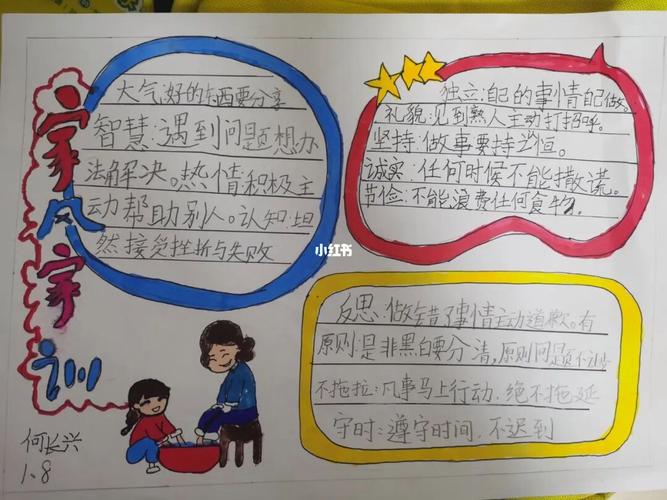 家风家训
大气:好的东西要分享
智慧:遇到问题想办
法解决。热情积极主
动帮助别人。认知:坦
然接受挫折与失败
独立:自己的事情自己做。
礼貌:见到熟人主动打招呼。
坚持:做事要持之恒。
诚实:任何时候不能撒谎。
节俭:不能浪费任何食物。
小红书
反思:做错了事情主动道歉。有
原则:是非黑白要分清,原则问题不
不拖拉:凡事马上行动,绝不拖延
守时:遵守时间,不迟到
何长兴
1.8